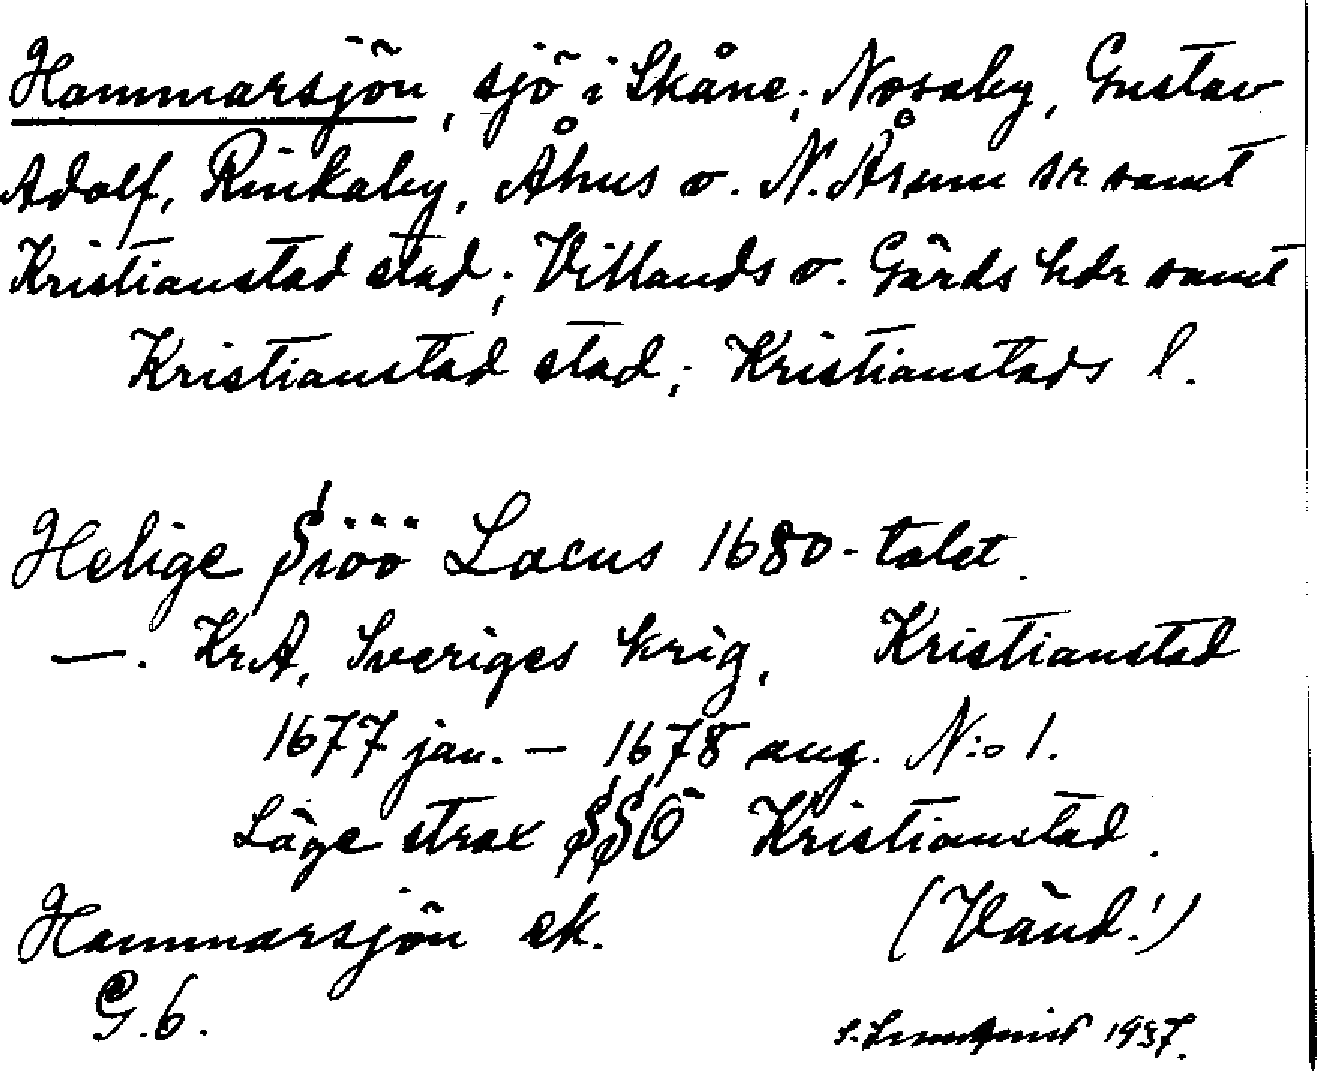 Hammarsjön, sjö i Skåne; Nosaby, Gustav
Adolf, Rinkaby, Åhus o. N. Åsum sr samt
Kristianstad stad; Villands o. Gärds hdr samt
Kristianstad stad; Kristianstads l.
Helige Siöö Lacus 1680-talet.
—. KrA, Sveriges krig, Kristianstad
1677 jan. — 1678 aug. N:o 1.
Läge strax SSÖ Kristianstad.
Hammarsjön ek. (Vänd!)
G.6.
1937.